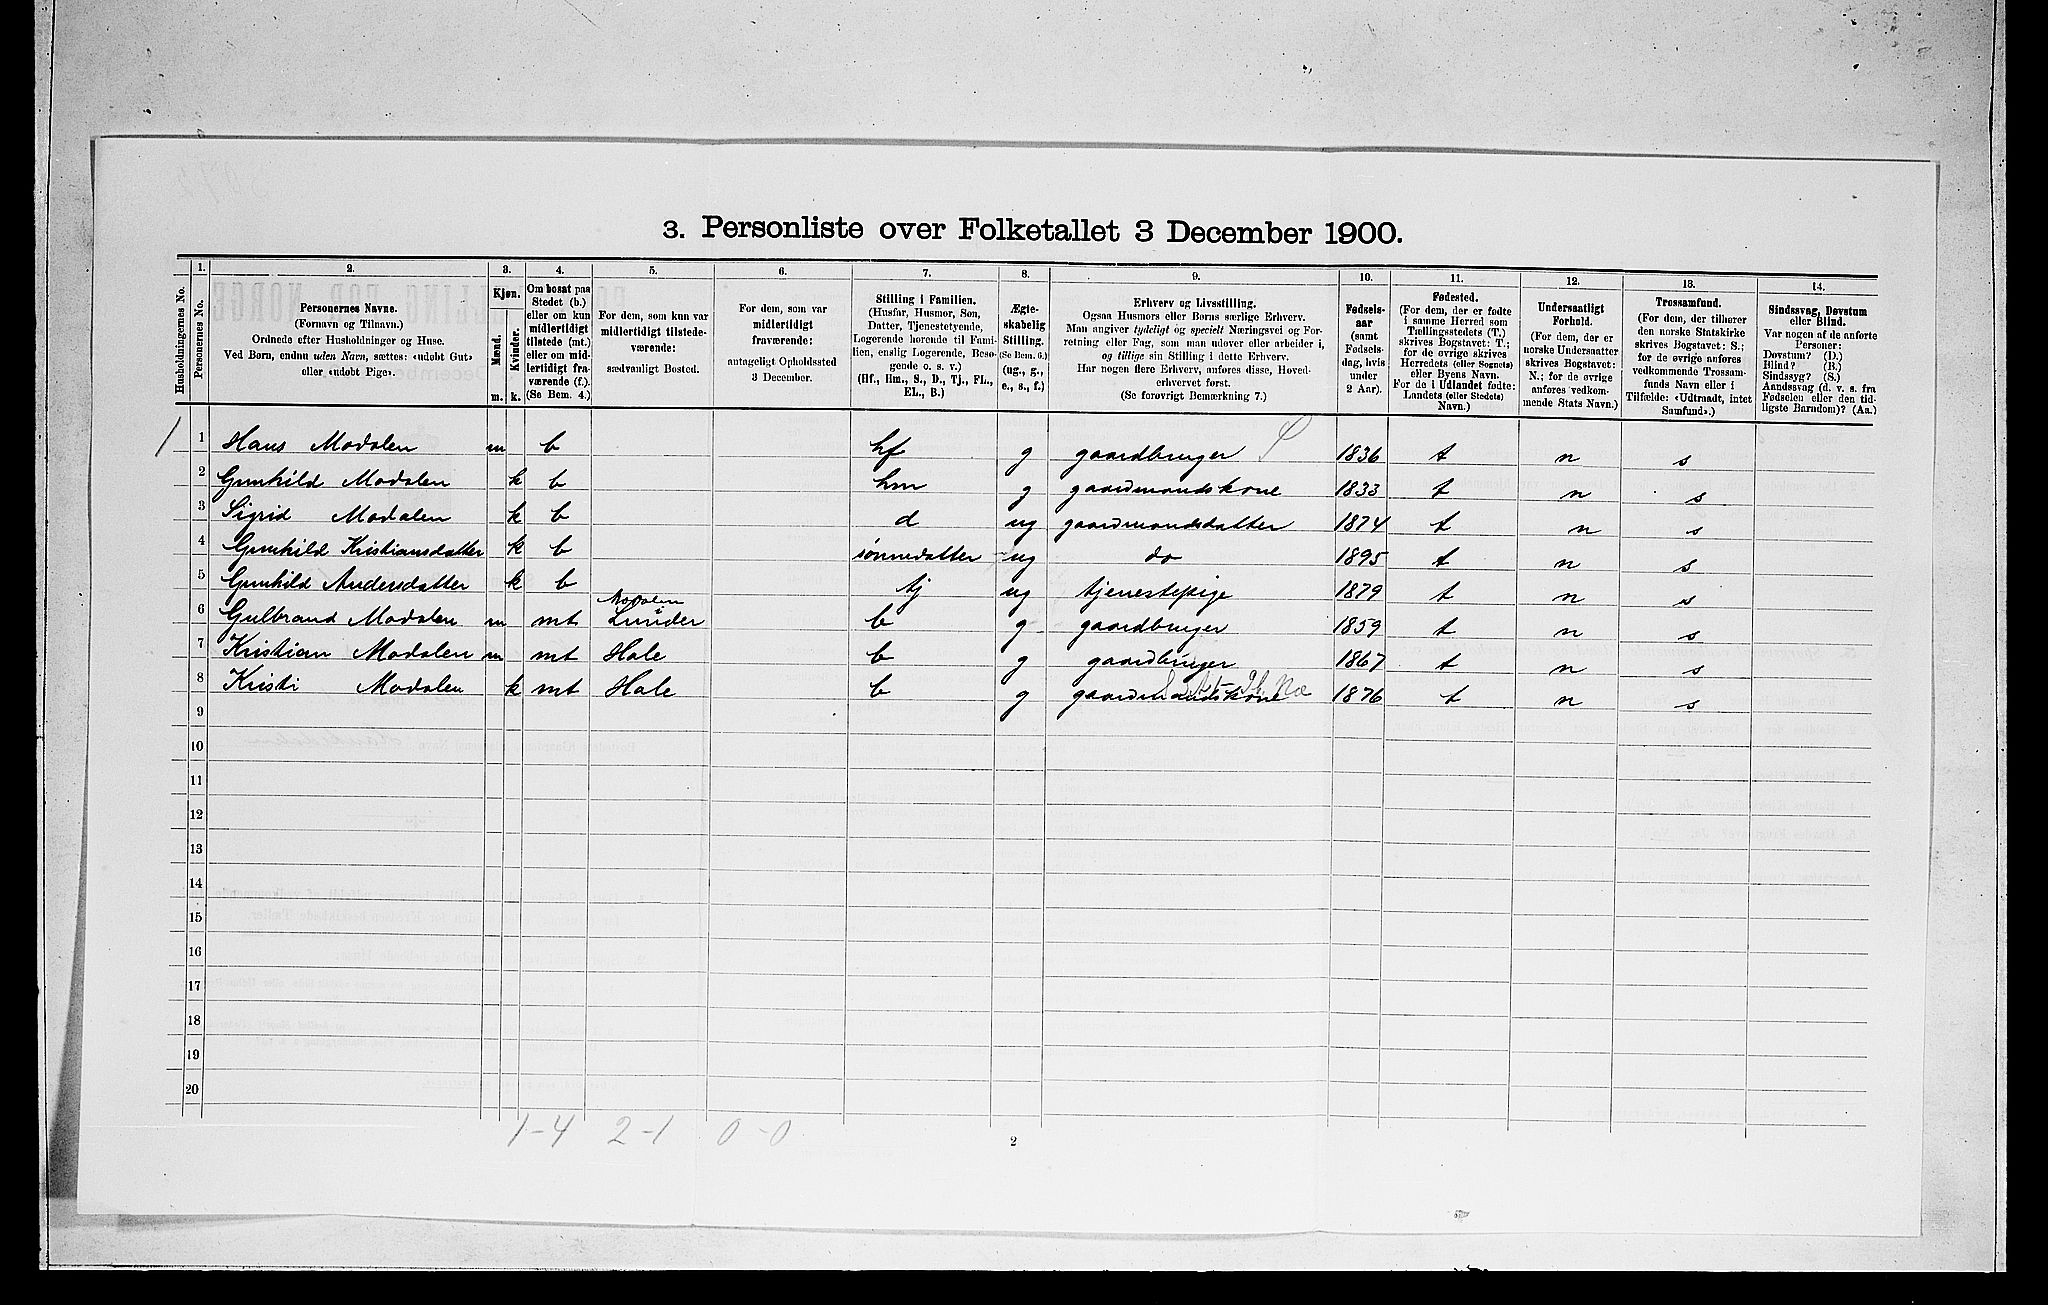 3. Personliste over Folketallet 3 December 1900.
1. 2. 3. 4. 5. 6. 7. 8. 9. 10. 11. 12. 13. 14.
Husholdningernes No.
Personernes No.
Personernes Navne.
(Fornavn og Tilnavn.)
Ordnede efter Husholdninger og Huse.
Ved Børn, endnu uden Navn, sættes: «udøbt Gut»
eller «udøbt Pige».
Kjøn.
Mænd.
Kvinder.
m. k.
Om bosat paa
Stedet (b.)
eller om kun
midlertidigt
tilstede (mt.)
eller om mid-
lertidigt fra-
værende (f.).
(Se Bem. 4.)
For dem, som kun var
midlertidigt tilstede-
værende:
sædvanligt Bosted.
For dem, som var
midlertidigt
fraværende:
antageligt Opholdssted
3 December.
Stilling i Familien.
(Husfar, Husmor, Søn,
Datter, Tjenestetyende,
Logerende hørende til Fami-
lien, enslig Logerende, Besø-
gende o. s. v.)
(Hf., Hm., S., D., Tj., FL.,
EL., B.)
Ægte-
skabelig
Stilling.
(Se Bem. 6.)
(ug., g.,
e., s., f.)
Erhverv og Livsstilling.
Ogsaa Husmors eller Børns særlige Erhverv.
Man angiver tydeligt og specielt Næringsvei og For-
retning eller Fag, som man udøver eller arbeider i,
og tillige sin Stilling i dette Erhverv.
Har nogen flere Erhverv, anføres disse, Hoved-
erhvervet først.
(Se forøvrigt Bemærkning 7.)
Fødsels-
aar
(samt
Fødsels-
dag, hvis
under
2 Aar).
Fødested.
(For dem, der er fødte
i samme Herred som
Tællingsstedets (T.)
skrives Bogstavet: T.;
for de øvrige skrives
Herredets (eller Sognets)
eller Byens Navn.
For de i Udlandet fødte:
Landets (eller Stedets)
Navn.)
Undersaatligt
Forhold.
(For dem, der er
norske Undersaatter
skrives Bogstavet:
N.; for de øvrige
anføres vedkom-
mende Stats Navn.)
Trossamfund.
(For dem, der tilhører
den norske Statskirke
skrives Bogstavet: S.;
for de øvrige anføres
vedkommende Trossam-
funds Navn eller i
Tilfælde: «Udtraadt, intet
Samfund».)
Sindssvag, Døvstum
eller Blind.
Var nogen af de anførte
Personer:
Døvstum? (D.)
Blind? (B.)
Sindssyg? (S.)
Aandssvag (d. v. s. fra
Fødselen eller den tid-
ligste Barndom)? (Aa.)
1 1 Hans Modalen m b hf g gaardbruger 1836 t n s
2 Gunhild Modalen k b hm g gaardmandskone 1833 t n s
3 Sigrid Modalen k b d ug gaardmandsdatter 1874 t n s
4 Gunhild Kristiansdatter k b sønnedatter ug do 1895 t n s
5 Gunhild Andersdatter k b tj ug tjenestepige 1879 t n s
6 Gulbrand Modalen m mt Modalen i Lunder b g gaardbruger 1859 t n s
7 Kristian Modalen m mt Hole b g gaardbruger 1867 t n s
8 Kristi Modalen k mt Hole b g gaardmandskone 1876 t n s
9
10
11
12
13
14
15
16
17
18
19
20
1-4 2-1 0-0
2